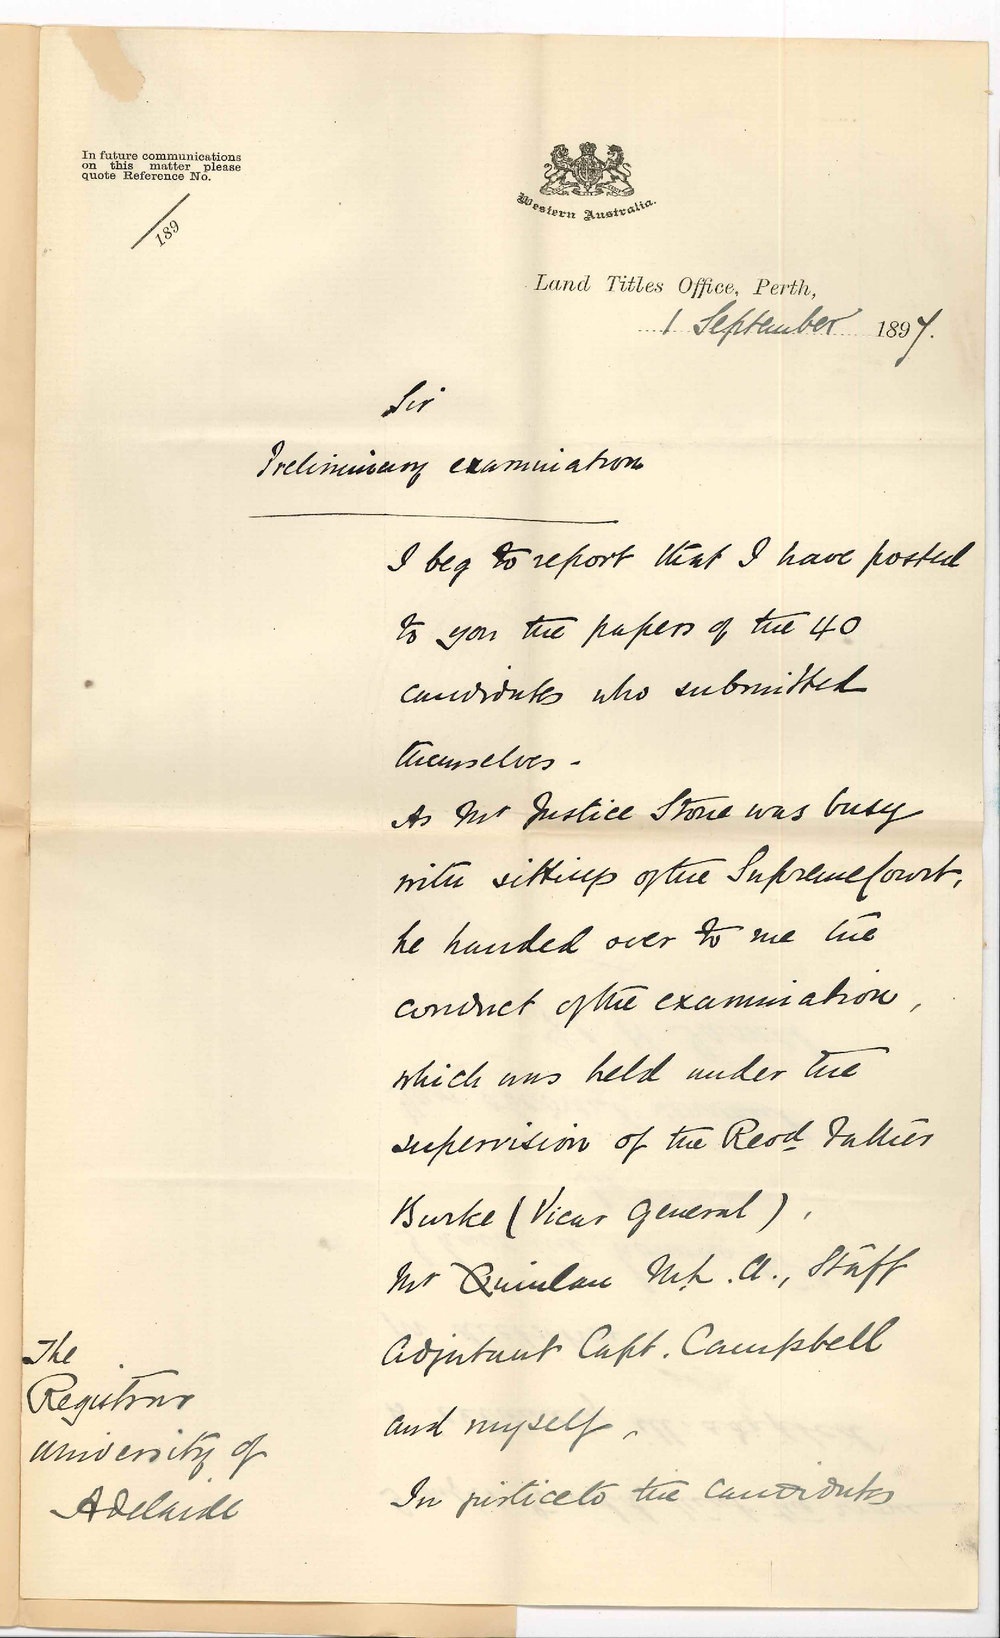 In future communications
on this matter please
quote Reference No.
/189
Western Australia.
Land Titles Office, Perth,
1 September 1897.
Sir
Preliminary examination
I beg to report that I have posted
to you the papers of the 40
candidates who submitted
themselves -
As Mr Justice Stone was busy
with sittings of the Supreme Court,
he handed over to me the
conduct of the examination,
which was held under the
supervision of the Revd Father
Burke (Vicar General),
Mr Quinlan M.L.A., Staff
Adjutant Capt. Campbell
and myself.
In justice to the candidates
The
Registrar
University of
Adelaide